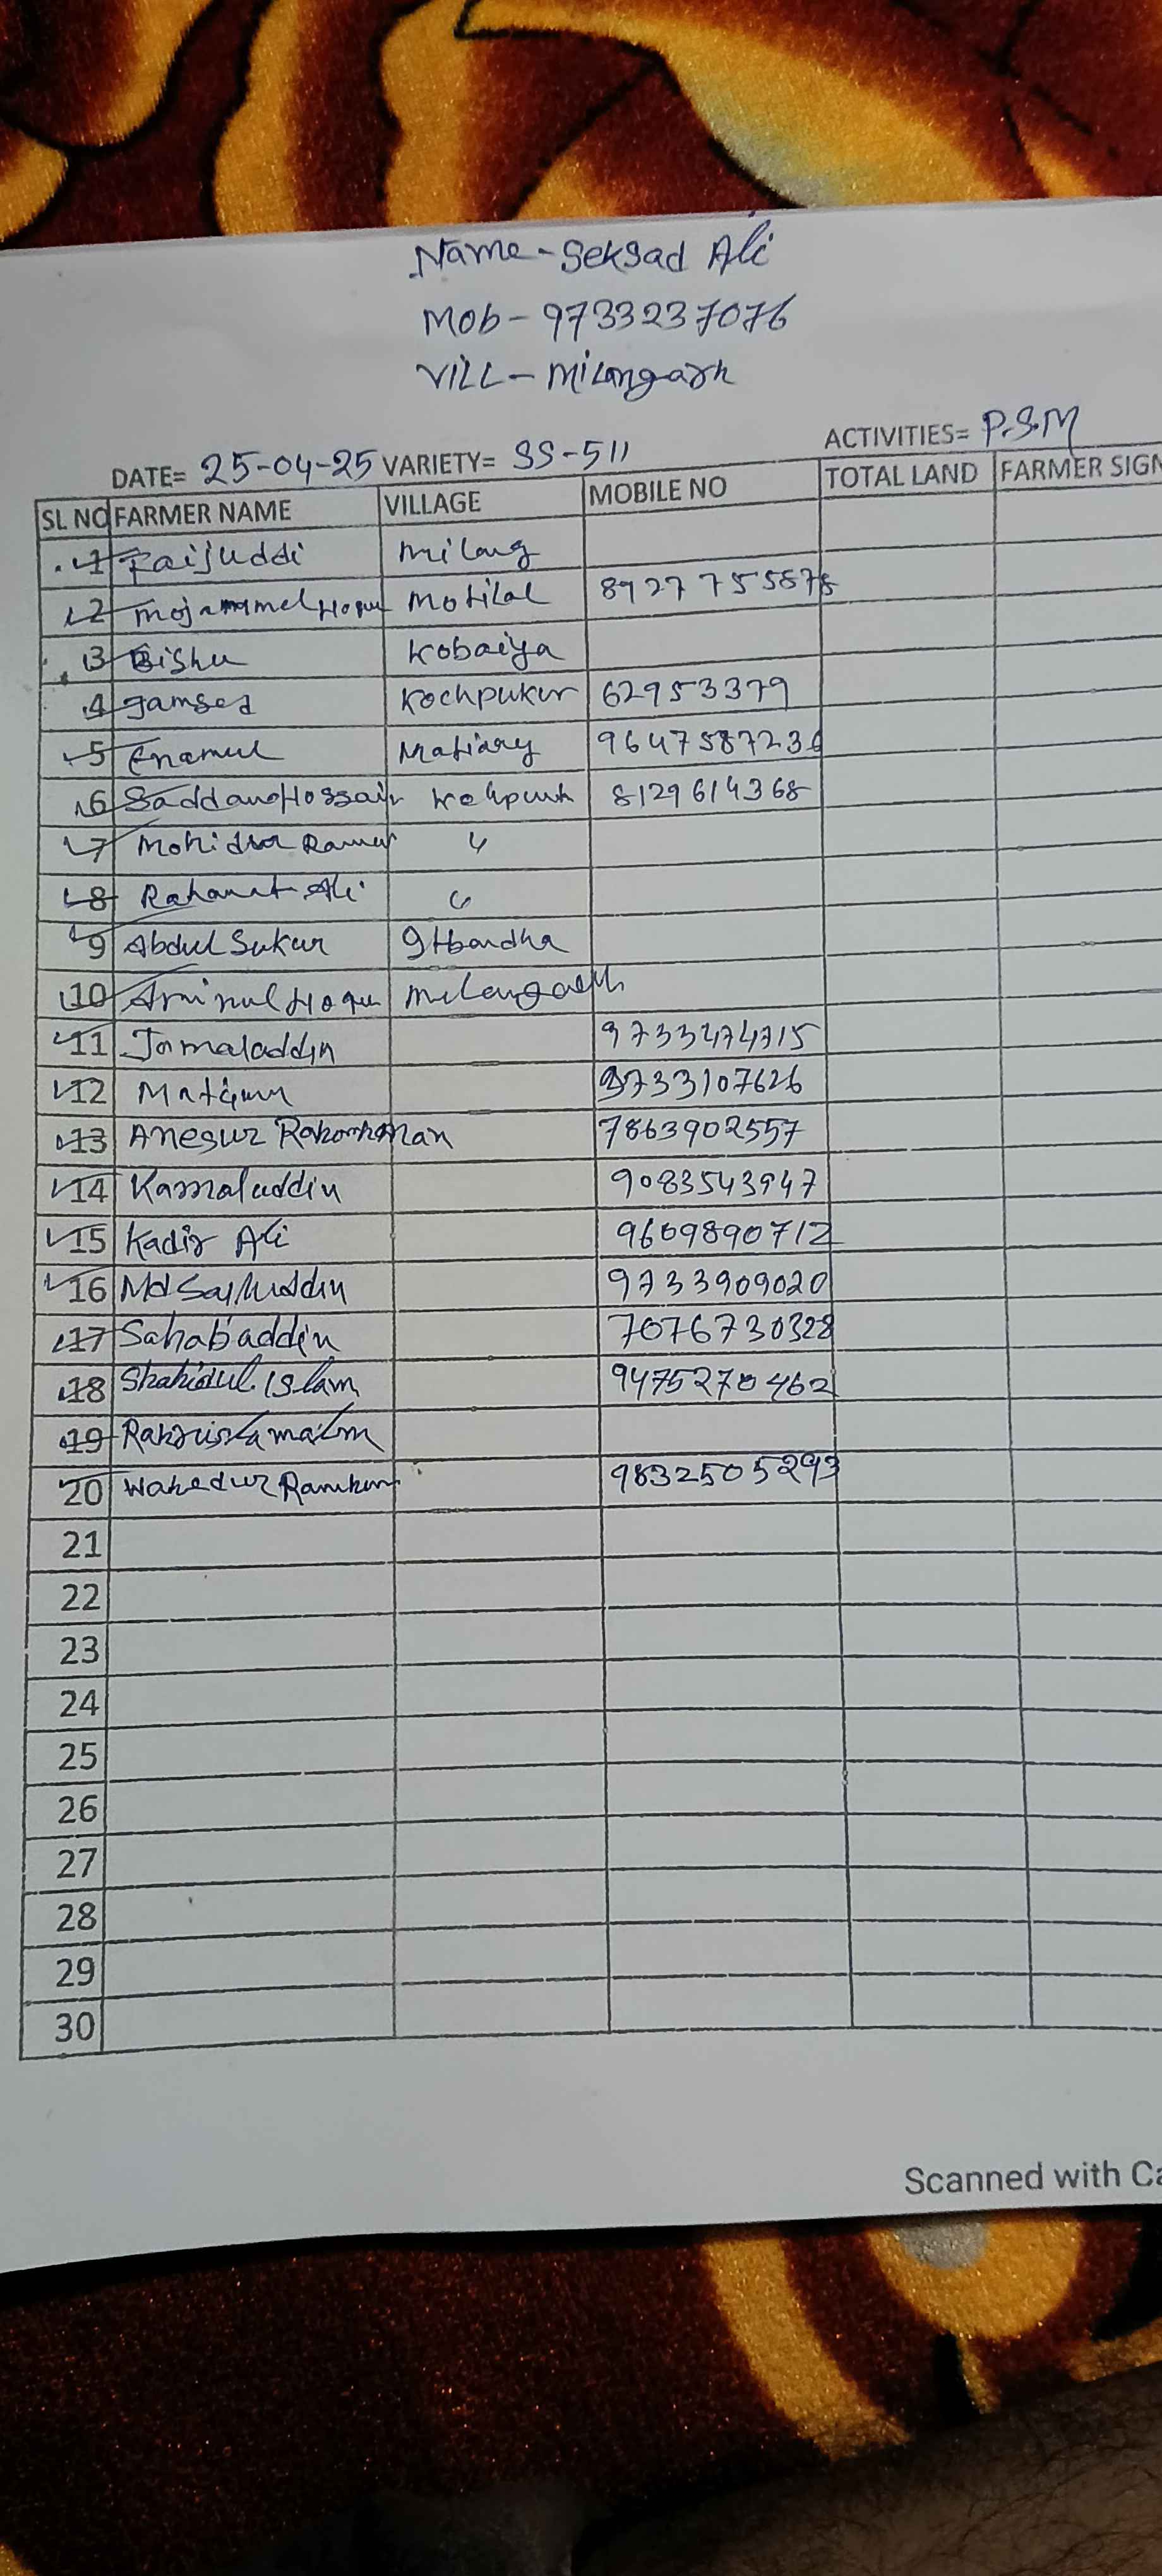 Name - Seksad Ali
Mob - 9733237076
VILL - Milangarh
ACTIVITIES= P.S.M
DATE= 25-04-25 VARIETY= SS-511
SL NO FARMER NAME VILLAGE MOBILE NO TOTAL LAND FARMER SIGN
1 Faijuddi Milang
2 Mojammel Hoque Motilal 8927755878
3 Bishu Kobaiya
4 Jamsed Kochpukur 62953379
5 Enamul Matiary 9647587236
6 Saddam Hossain 8129614368
7 Mohidur 4
8 Rahamat Ali
9 Abdul Sukur
10 Aminul Hoque Milangarh
11 Jamaladdin 9733474715
12 9733107626
13 Anesur Rahaman 7863902557
14 Kamaluddin 9083543947
15 Kadir Ali 9609890712
16 Md Saifuddin 9733909020
17 Sahabaddin 7076730328
18 Shahidul Islam 9475270462
19
20 Wahedur 9832505293
21
22
23
24
25
26
27
28
29
30
Scanned with Ca